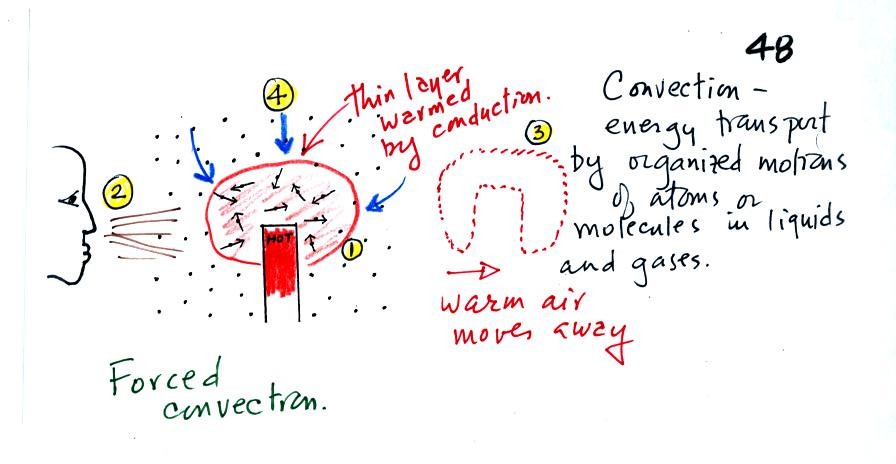 48
4
thin layer
warmed
by conduction.
Convection -
energy transport
by organized motions
of atoms or
molecules in liquids
and gases.
3
2
HOT
1
warm air
moves away
Forced
convection.